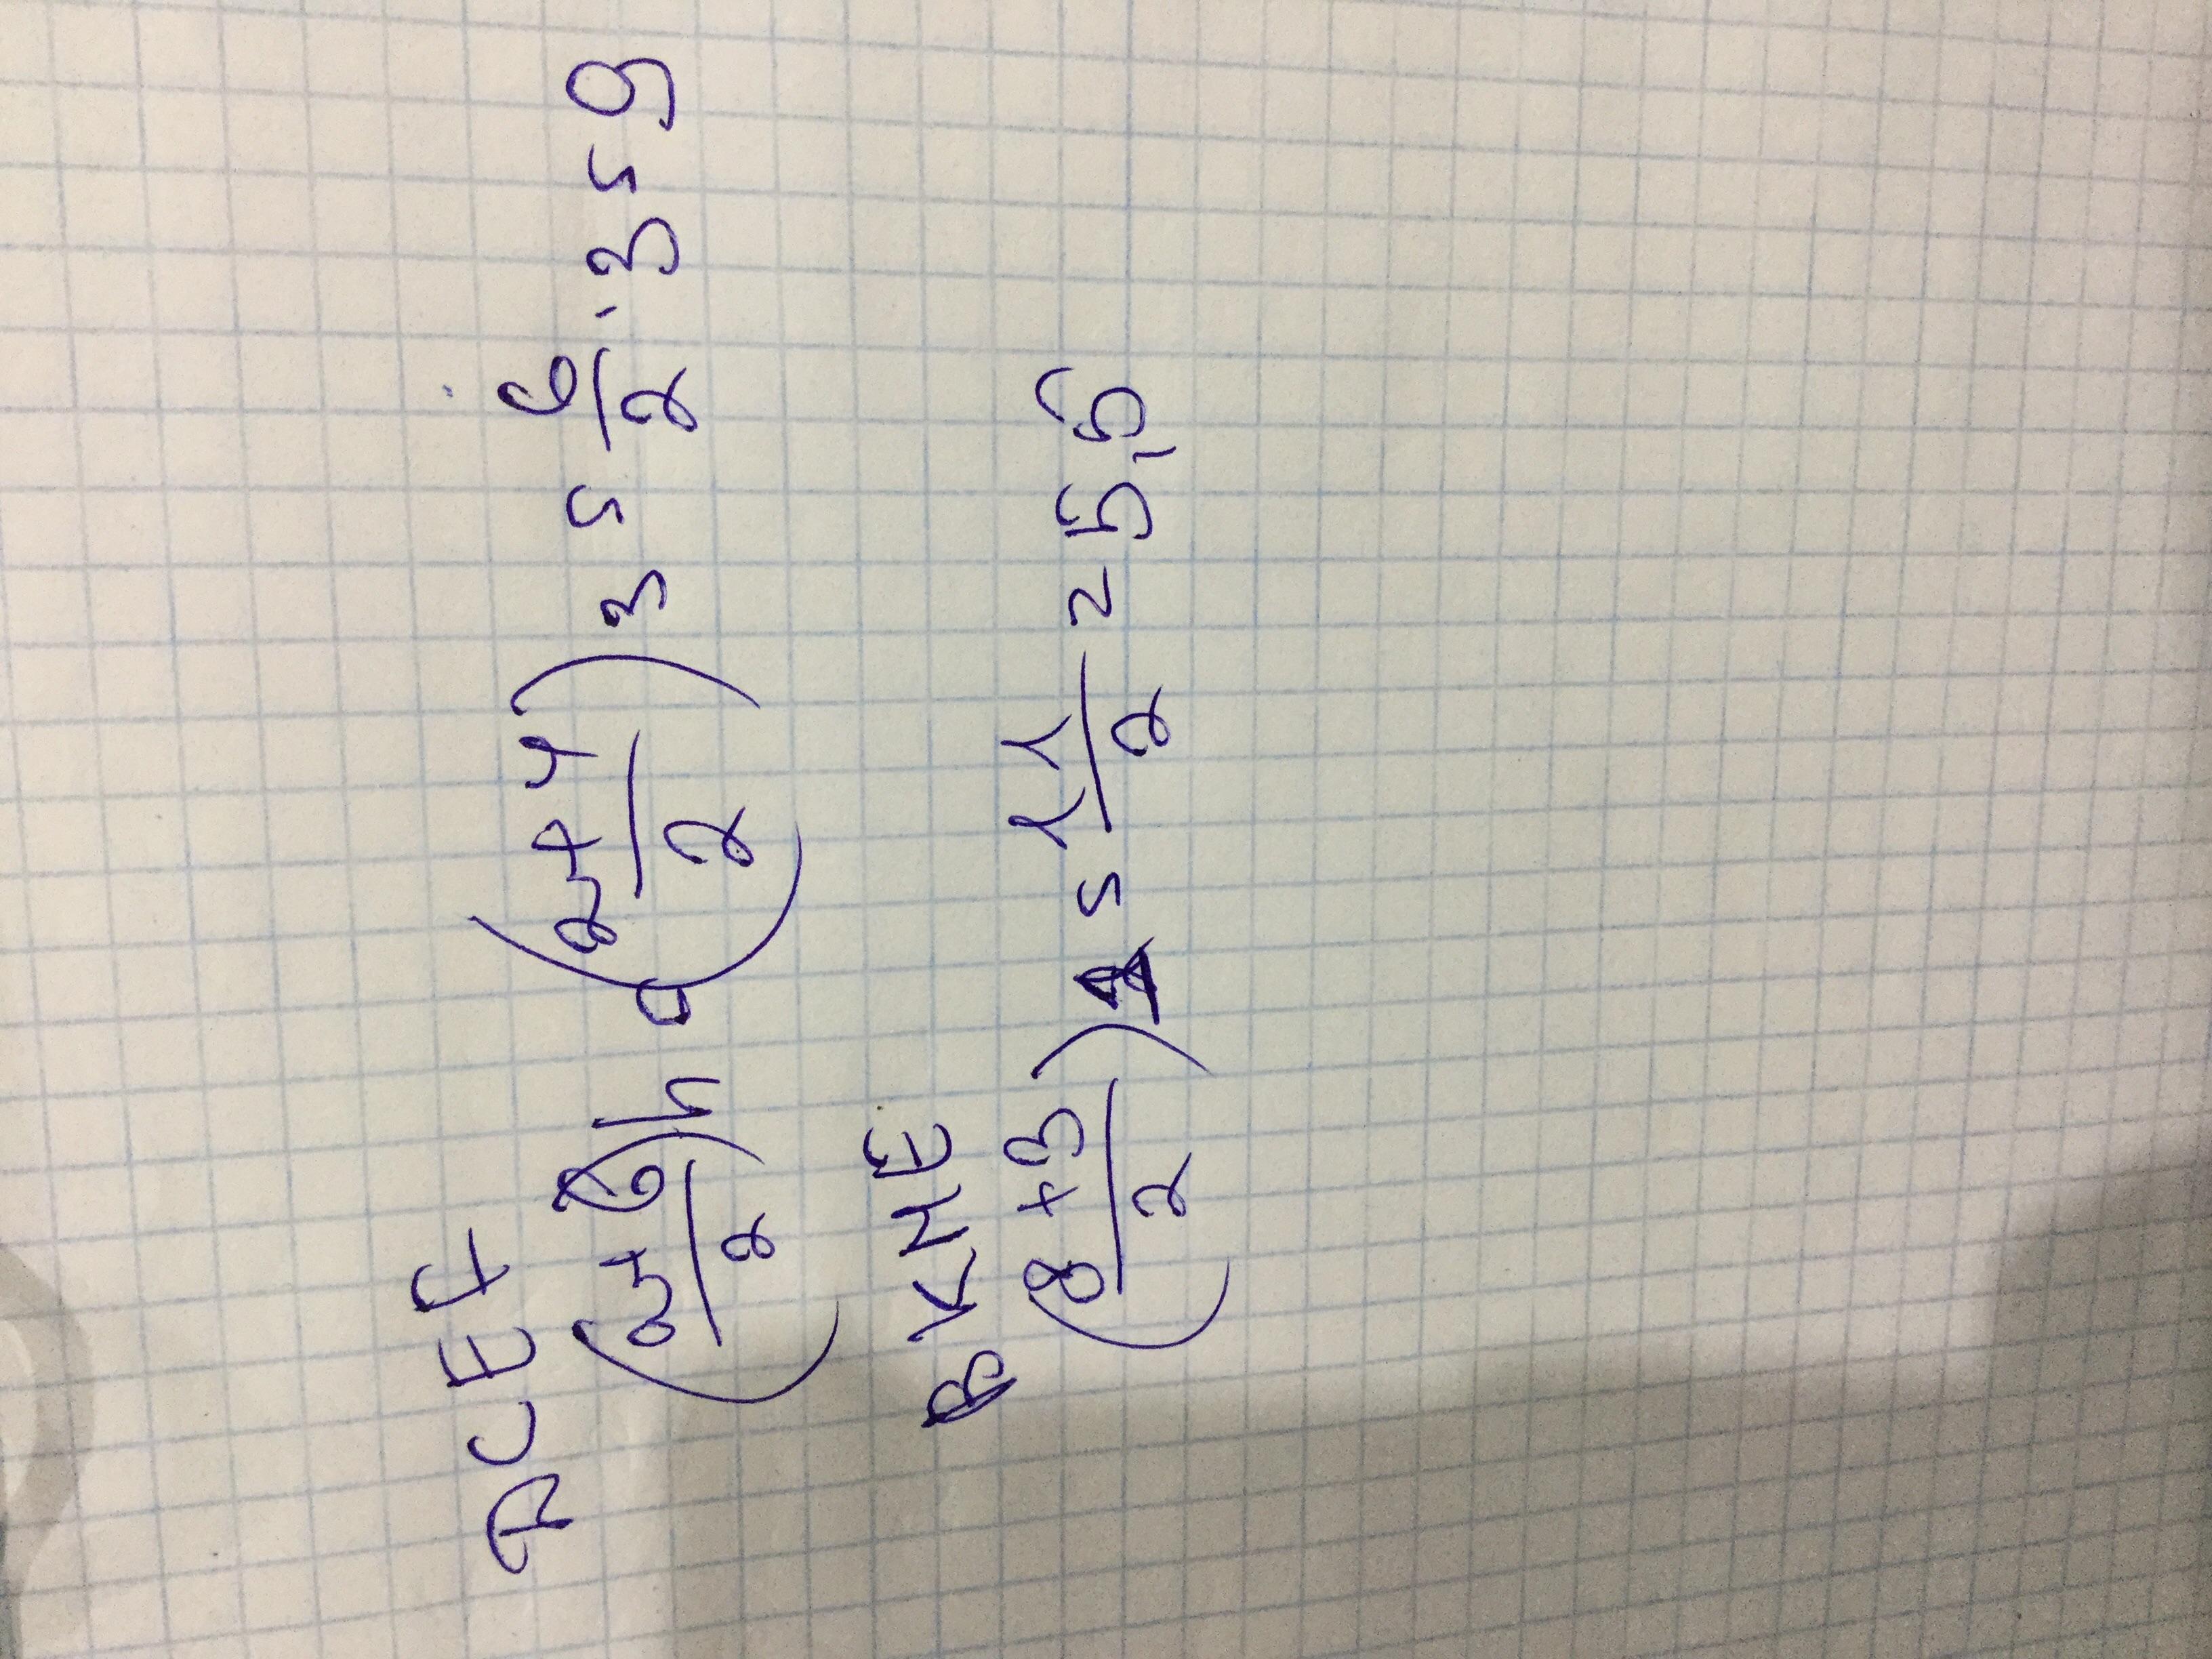 ACEF
(a+b/2)h = (2+4/2)3 = 6/2·3=9
BKME
(8+3/2)1 = 11/2 = 5,5